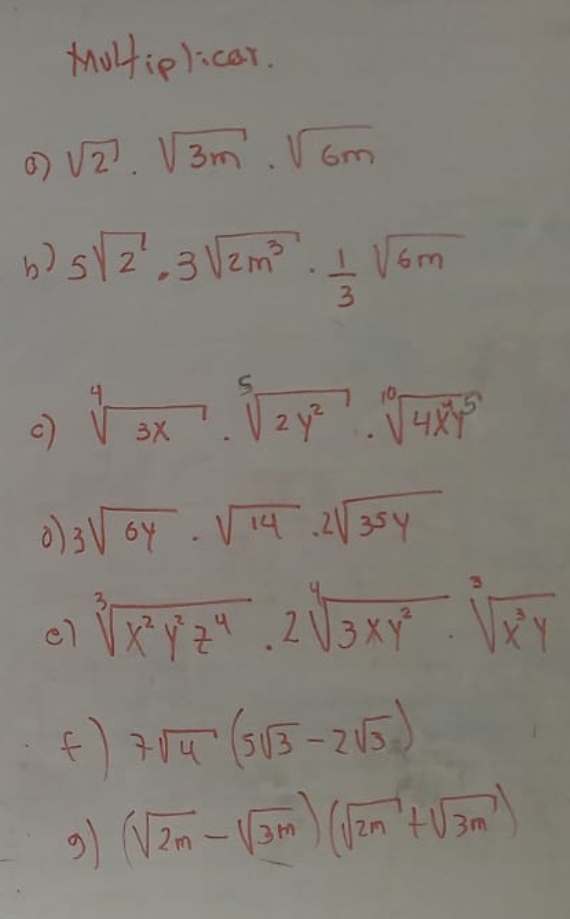 Multiplicar.
a) √2 . √3m . √6m
b) 5√2 . 3√2m³ . 1/3 √6m
c) ⁴√3x . ⁵√2y² . ¹⁰√4x⁴y⁵
d) 3√6y . √14 . 2√35y
e) ³√x²y²z⁴ . 2 ⁴√3xy² . ³√x³y
f) 7√4 (5√3 - 2√3)
g) (√2m - √3m) (√2m + √3m)